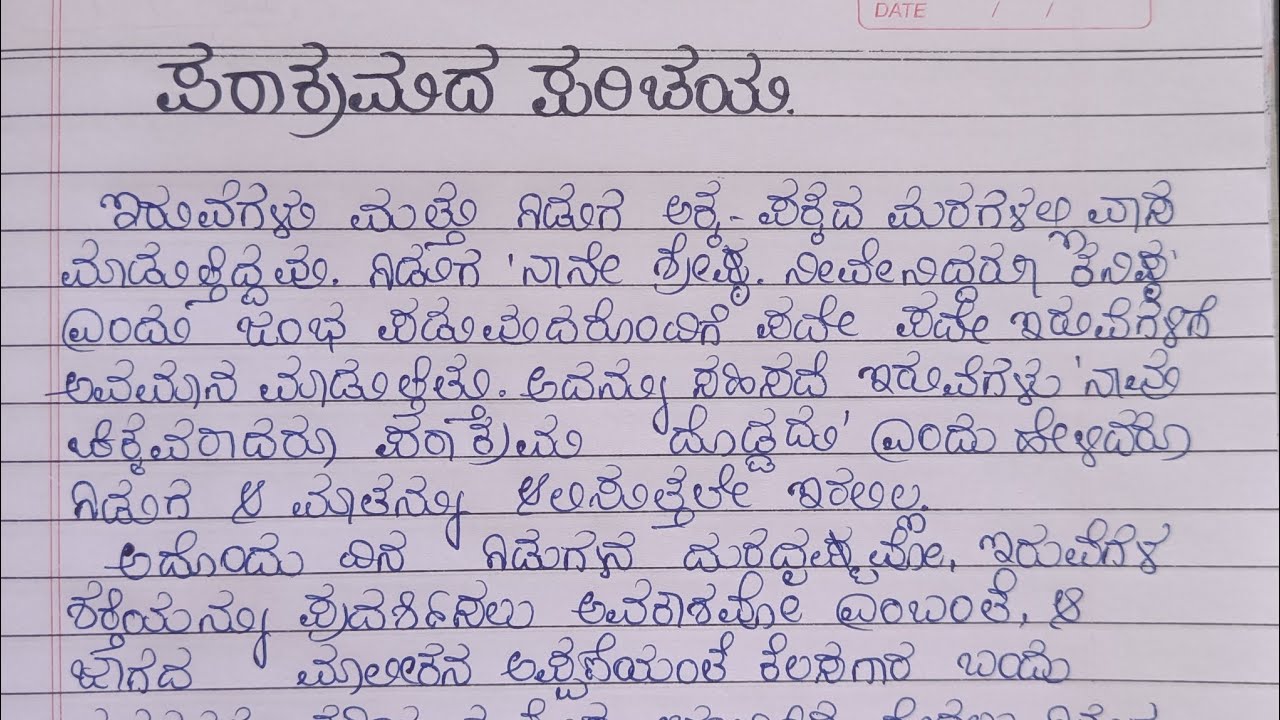 DATE / /
ಪರಾಕ್ರಮದ ಪರಿಚಯ.
ಇರುವೆಗಳು ಮತ್ತು ಗಿಡುಗ ಅಕ್ಕ-ಪಕ್ಕದ ಮರಗಳಲ್ಲಿ ವಾಸ
ಮಾಡುತ್ತಿದ್ದವು. ಗಿಡುಗ 'ನಾನೇ ಶ್ರೇಷ್ಠ. ನೀವೇನಿದ್ದರೂ ಕನಿಷ್ಠ'
ಎಂದು ಜಂಭ ಪಡುವುದರೊಂದಿಗೆ ಪದೇ ಪದೇ ಇರುವೆಗಳಿಗೆ
ಅವಮಾನ ಮಾಡುತ್ತಿತ್ತು. ಅದನ್ನು ಸಹಿಸದೆ ಇರುವೆಗಳು 'ನಾವು
ಚಿಕ್ಕವರಾದರೂ ಪರಾಕ್ರಮ ದೊಡ್ಡದು' ಎಂದು ಹೇಳಿದರೂ
ಗಿಡುಗ ಆ ಮಾತನ್ನು ಆಲಿಸುತ್ತಲೇ ಇರಲಿಲ್ಲ.
ಅದೊಂದು ದಿನ ಗಿಡುಗನ ದುರದೃಷ್ಟವೋ, ಇರುವೆಗಳ
ಶಕ್ತಿಯನ್ನು ಪ್ರದರ್ಶಿಸಲು ಅವಕಾಶವೋ ಎಂಬಂತೆ, ಆ
ಜಾಗದ ಮಾಲೀಕನ ಅಪ್ಪಣೆಯಂತೆ ಕೆಲಸಗಾರ ಬಂದು